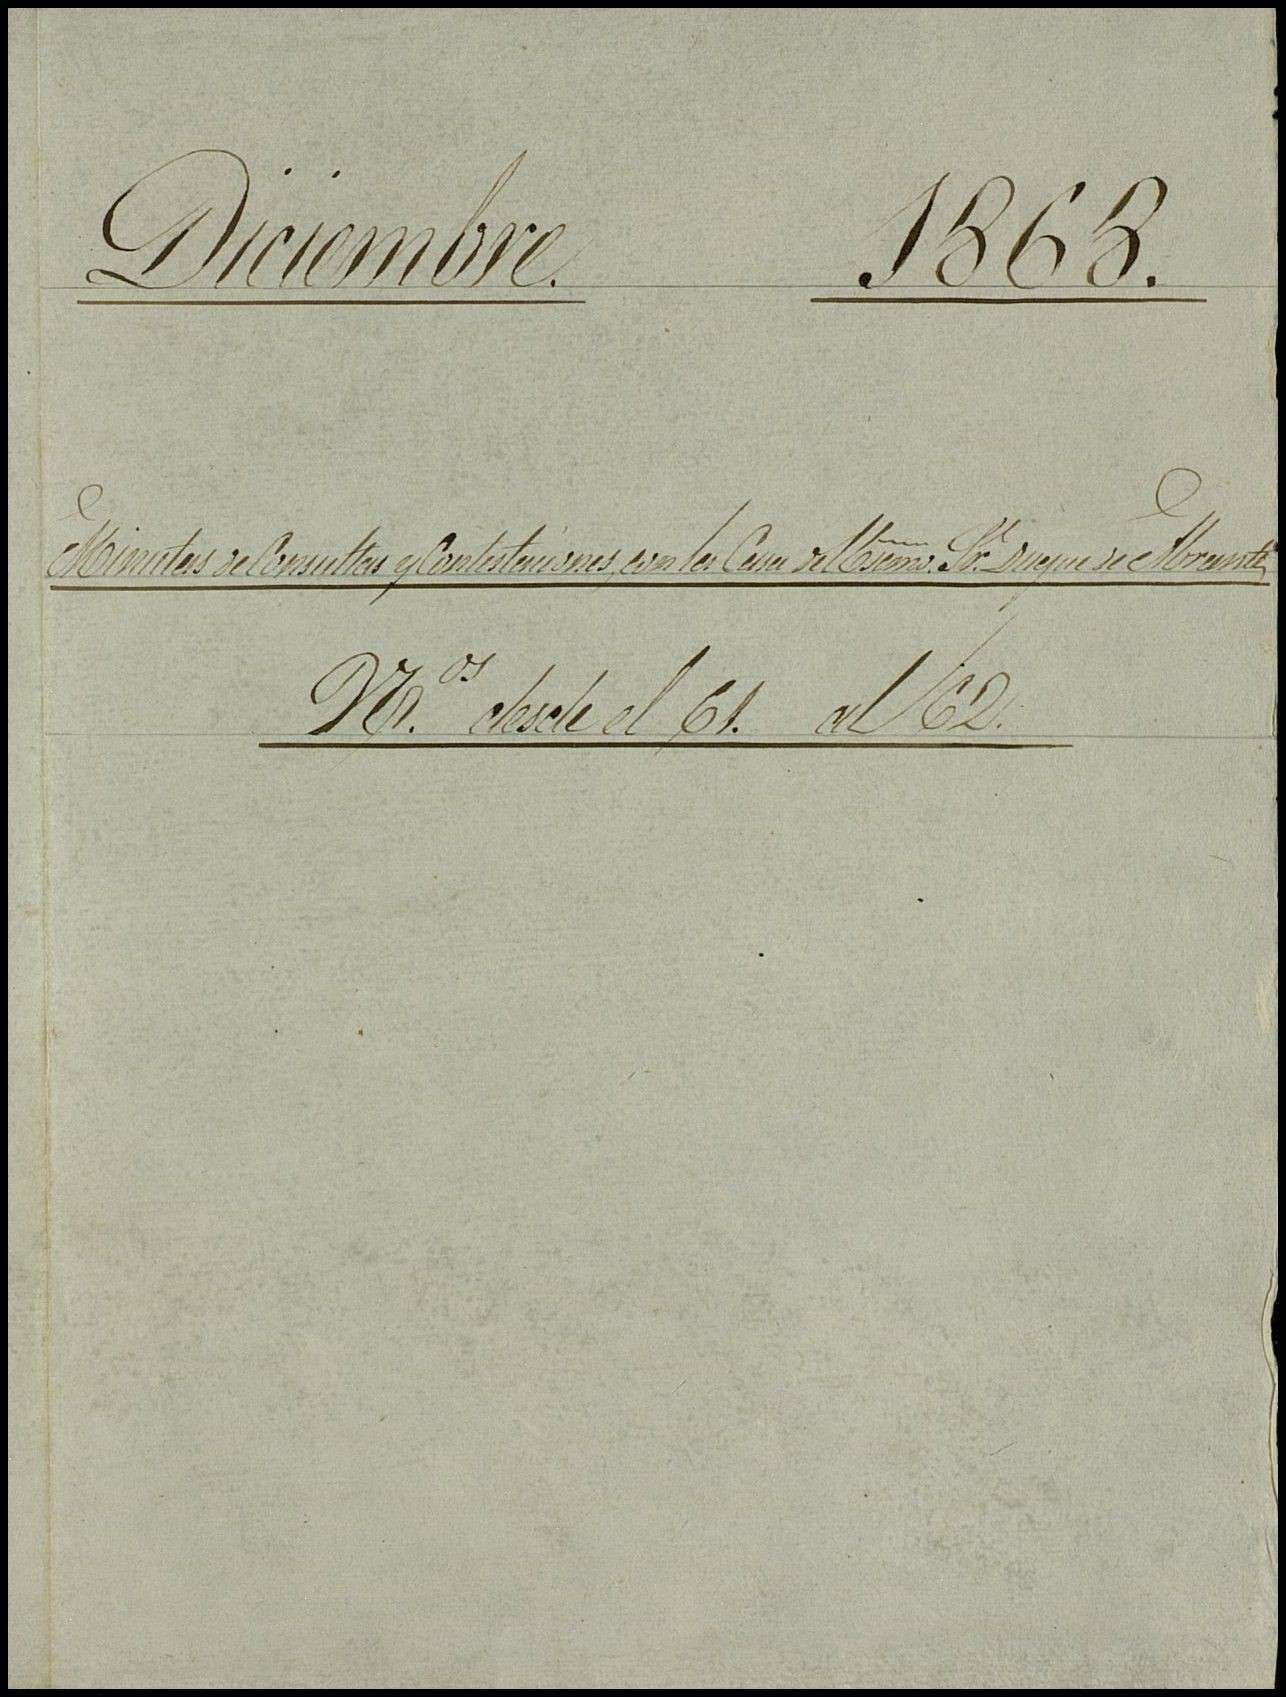 Diciembre. 1868.
Minutas de Consultas y Contestaciones, con la Casa del Excmo. Sr. Duque de Abrantes
N.os desde el 61. al 62.